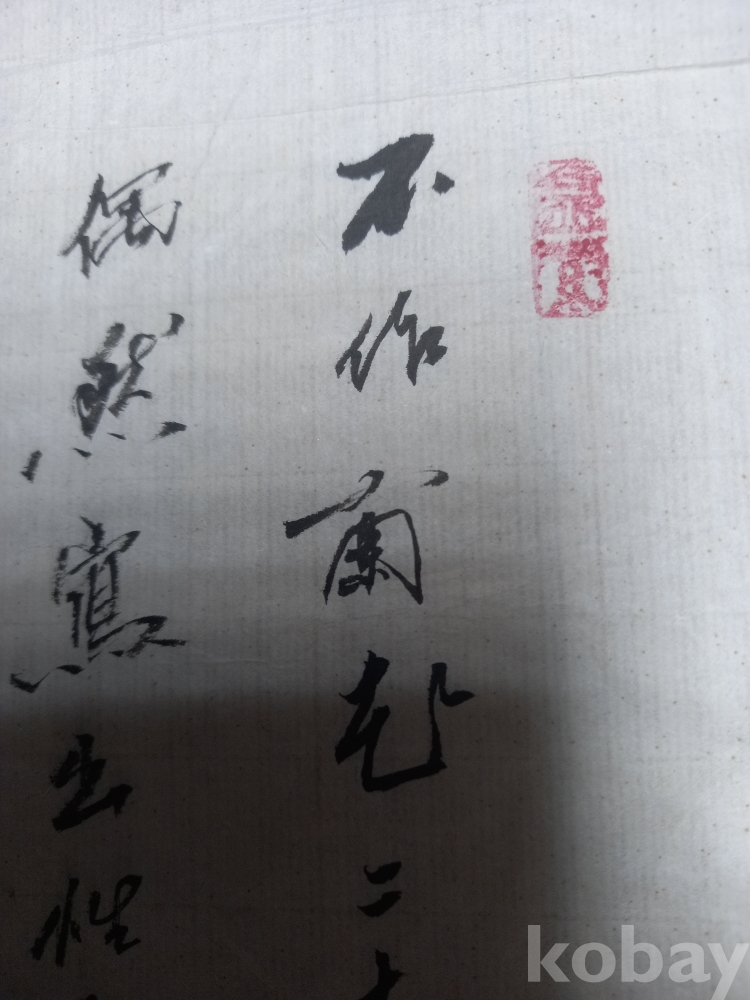 不作蘭花二十
偶然寫出性
kobay